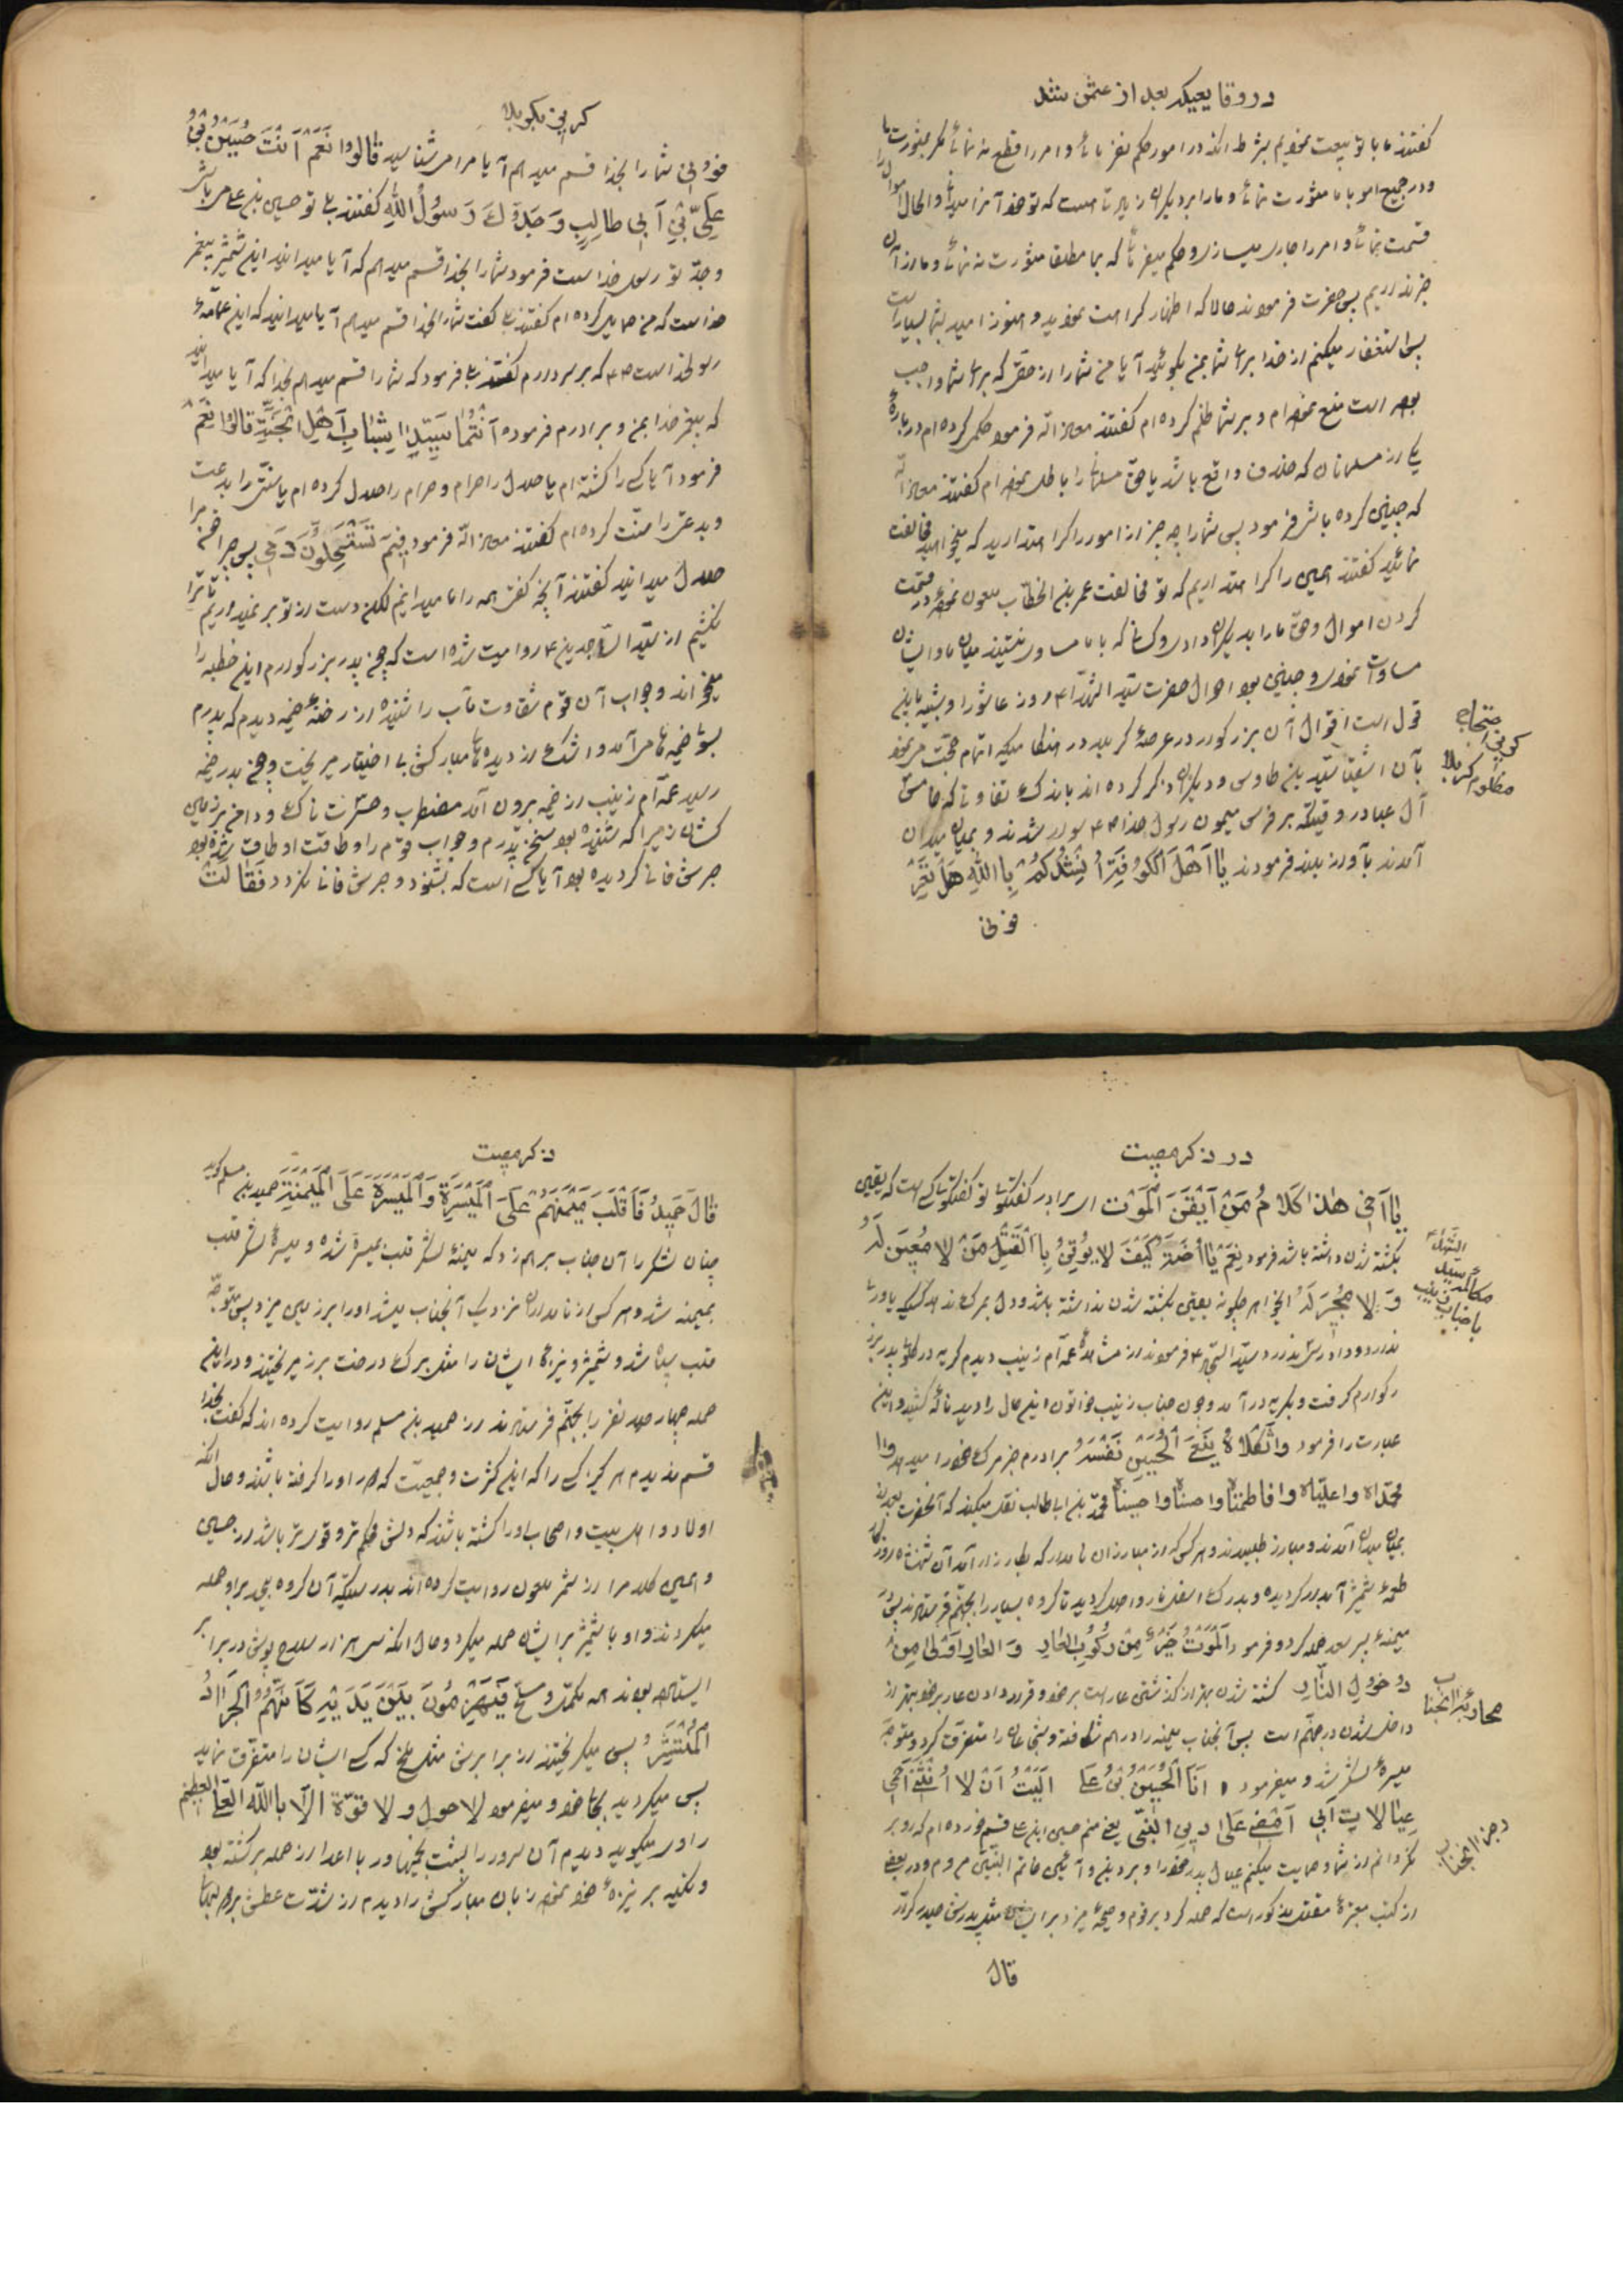 در وقایعیکه بعد از عثمن شد
گفتند ما با تو بیعت نمودیم بشرط آنکه در امور حکم نفرمائی و امر را قطع ننمائی مگر بمشورت ما
و در جمیع امور با ما مشورت نمائی و ما را بر دیگران زیادتی است که تو خود آنرا میدانی و الحال اموال را
قسمت نمائی و امر را جاری میسازی و حکم میفرمائی که بما مطلقا مشورت نه نمائی و ما از آن
خبر نداریم پس حضرت فرمودند حالا که اظهار کراهت نمودید و هنوز امید بشما بسیار است
پس استغفار میکنم از خدا برای شما بمن بگوئید آیا من شما را از حقی که برای شما واجب
بوده است منع نموده‌ام و بر شما ظلم کرده‌ام گفتند معاذ الله فرمود حکمی کرده‌ام درباره
یکی از مسلمانان که خلاف واقع باشد یا حق مسلمانی را باطل نموده‌ام گفتند معاذ الله
که چنین کرده باشی فرمود پس شما را چه چیز از امور را کراهت دارید که میخواهید مخالفت
نمائید گفتند همین را کراهت داریم که تو مخالفت عمر بن الخطاب ملعون نموده‌ای در قسمت
کردن اموال و حق ما را بدیگران دادی و کسانی که با ما مساوی نیستند میان ما و ایشان
مساوات نمودی و چنین بود احوال حضرت سید الشهدا ۴ روز عاشورا و بشبیه باین
قول است اقوال آن بزرگوار در عرصهٔ کربلا در هنگامیکه اتمام حجت مینمود
بآن اشقیا سید بن طاوس و دیگران ذکر کرده‌اند باندک تفاوتی که خامس
آل عبا در وقتیکه بر فرس میمون رسول خدا سوار شدند و بمیان میدان
آمدند بآواز بلند فرمودند یٰا اَهْلَ الْکُوفَةِ اُنْشِدُکُمْ بِاللّٰهِ هَلْ تَعْرِ
فونی
مظلوم کربلا
کربن بکربلا
فُونِی شما را بخدا قسم میدهم آیا مرا میشناسید قالُوا نَعَمْ اَنْتَ حُسَیْنُ بْنُ
عَلِیِّ بْنِ اَبی طالِبٍ وَ جَدُّکَ رَسُولُ اللهِ گفتند بلی تو حسین بن علی میباشی
و جد تو رسول خدا است فرمود شما را بخدا قسم میدهم که آیا میدانید این شمشیر پیغمبر
خدا است که من حمایل کرده‌ام گفتند بلی گفت شما را بخدا قسم میدهم آیا میدانید که این عمامهٔ
رسولخدا است که بر سر دارم گفتند بلی فرمود که شما را قسم میدهم بخدا که آیا میدانید
که پیغمبر خدا بمن و برادرم فرموده اَنْتُمٰا سَیِّدٰا شَبٰابِ اَهْلِ الْجَنَّةِ قالُوا نَعَمْ
فرمود آیا کسی را کشته‌ام یا حلال را حرام و حرام را حلال کرده‌ام یا سنتی را بدعت
و بدعتی را سنت کرده‌ام گفتند معاذ الله فرمود فَبِمَ تَسْتَحِلُّونَ دَمی پس چرا خون مرا
حلال میدانید گفتند آنچه گفتی همه را ما میدانیم لکن دست از تو بر نمیداریم تا ترا
نکشیم از سید الساجدین ۴ روایت شده است که چون پدر بزرگوارم این خطبه را
میخواند و جواب آن قوم شقاوت مآب را شنیده از رخنهٔ خیمه دیدم که پدرم
بسوی خیمه ما می‌آمد و اشک از دیده‌های مبارکش بی اختیار میریخت و چون بدر خیمه
رسید عمه‌ام زینب از خیمه برون آمد مضطرب و حسرت ناک و دامن بر زمین
کشان زیرا که شنیده بود سخن پدرم و جواب قوم را و طاقت او طاق شده بود
خرمن فانی گردیده بود آیا کسی است که بشنود و خرمن فانی نگردد فَقٰالَتْ
در ذکر مصیبت
یٰا اَخی هٰذا کَلٰامُ مَنْ اَیْقَنَ الْمَوْتَ ای برادر گفتگوی تو گفتگوی کسی است که یقین
بکشته شدن داشته باشد فرمود نَعَمْ یٰا اُخْتٰاهُ کَیْفَ لا یُوقِنُ بِالْقَتْلِ مَنْ لا مُعینَ لَهُ
وَ لا مُجیرَ لَهُ ایخواهر چگونه یقین بکشته شدن نداشته باشد و دل بمرگ ننهد کسیکه یاوری
ندارد و دادرسی ندارد سید السجاد ۴ فرمودند از مشاهدهٔ عمه‌ام زینب دیدم گریه در گلوی پدر بز
رگوارم گرفت و بگریه در آمد و چون جناب زینب خواتون این حال را دید نالهٔ کشید و این
عبارت را فرمود وا ثَکْلاهُ یَنْعَی الْحُسَیْنُ نَفْسَهُ برادرم خبر مرگ خود را میدهد وا
محمداه وا علیاه وا فاطمتاه وا حسناه وا حسیناه محمد بن ابی طالب نقل میکند که آنحضرت بعد از
بمیدان آمدند و مبارز طلبیدند و هر کسی که از مبارزان نامدار که بکارزار آمد آن شهنشاه روزگار
طعمهٔ شمشیر آبدار گردیده و بدرک اسفل نار واصل گردید تا گروه بسیار را بجهنم فرستادند پس بر
میمنهٔ پسر سعد حمله کرد و فرمود اَلْمَوْتُ خَیْرٌ مِنْ رُکُوبِ الْعٰارِ وَ الْعٰارُ اَوْلیٰ مِنْ
دُخُولِ النّٰارِ کشته شدن بهتر از گذشتن عار است بر خود و قرار دادن عار بر خود بهتر از
داخل شدن در جهنم است پس آنجناب میمنه را درهم شکافته و شجاعان را متفرق کرد و متوجه
میسرهٔ لشکر شد و میفرمود اَنَا الْحُسَیْنُ بْنُ عَلی اٰلَیْتُ اَنْ لا اَنْثَنی اَحْمی
عِیٰالاتِ اَبی اَمْضی عَلیٰ دینِ النَّبی یعنی منم حسین ابن علی قسم خورده‌ام که رو بر
نگردانم از شما و حمایت میکنم عیال پدر خود را و بر دین و آئین خاتم النبیین میروم و در بعضی
از کتب معتبرهٔ مقتل مذکور است که حمله کرد بر قوم و صیحه میزد بر ایشان مثل پدرش حیدر کرار
قال
مکالمهٔ سید الشهداء
با جناب زینب
محاربهٔ آنجناب
رجز آنجناب
ذکر مصیبت
قالَ حَمیدٌ فَاَقْلَبَ مَیْمَنَهُمْ عَلَی الْمَیْسَرَةِ وَ الْمَیْسَرَةَ عَلَی الْمَیْمَنَةِ حمید بن مسلم گوید
چنان لشکر را آن جناب برهم زد که میمنهٔ لشکر قلب بمیسرة شده و میسرهٔ لشکر قلب
بمیمنه شد و هر کس از نامداران نزدیک آنجناب میشد او را بر زمین میزد پس متوجه
قلب سپاه شد و شمشیر و نیزهٔ ایشان را مثل برگ درخت بر زمین میریختند و در این
حمله چهار صد نفر را بجهنم فرستادند از حمید بن مسلم روایت کرده‌اند که گفت بخدا
قسم ندیدم هرگز کسی را که این کثرت و جمعیت گرد او را گرفته باشند و حال آنکه
اولاد و اهل بیت و اصحاب او را کشته باشند که دلش محکم‌تر و قوی‌تر باشد از حسین
و همین کلام را از شمر ملعون روایت کرده‌اند بدرستیکه آن گروه بی‌دین بر او حمله
میکردند و او با شمشیر بر ایشان حمله میکرد و حال آنکه سی هزار سلاح پوش در برابر
ایستاده بودند همه مکمل و مسلح فَیَنْهَزِمُونَ بَیْنَ یَدَیْهِ کَاَنَّهُمُ الْجَرٰادُ
الْمُنْتَشِرُ پس میگریختند از برابرش مثل ملخ که کسی ایشان را متفرق نماید
پس میگردید بجای خود و میفرمود لا حول و لا قوة الا بالله العلی العظیم
راوی میگوید دیدم آن سرور را پشت بخیمها و رو با اعدا از حمله برگشته بود
و تکیه بر نیزهٔ خود نموده زبان مبارکش را دیدم از شدت عطش بر هر لبهای